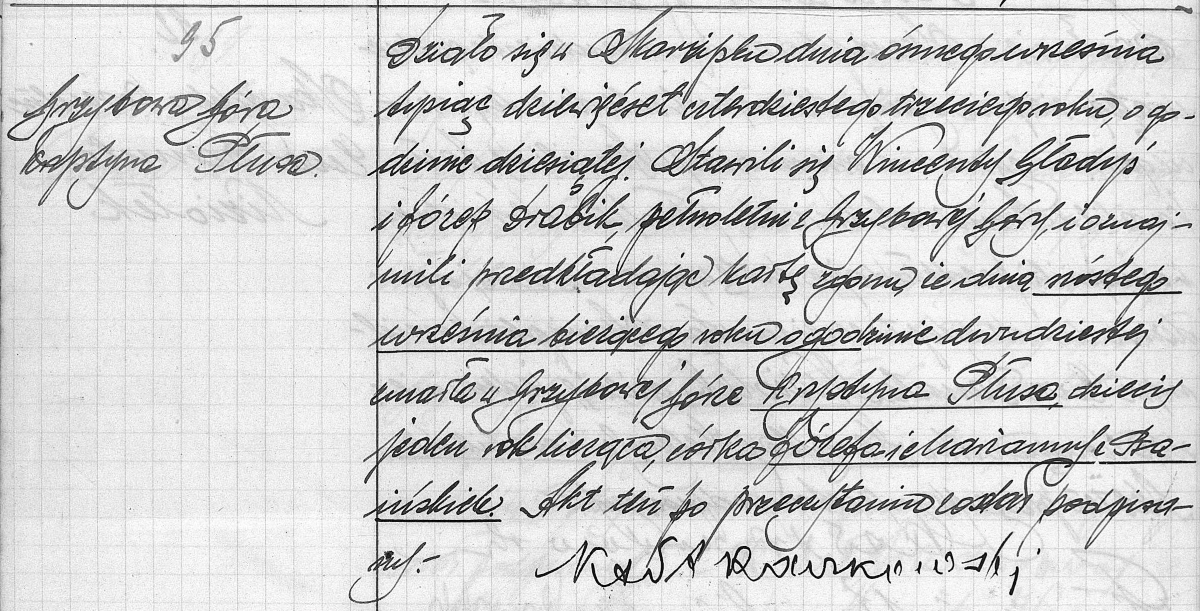 95
Grzybowa Góra
Krystyna Płusa.
Działo się w Skarżysku dnia ósmego września
tysiąc dziewięćset czterdziestego trzeciego roku, o go-
dzinie dziesiątej. Stawili się Wincenty Gładyś
i Józef Drabik, pełnoletni z Grzybowej Góry, i oznaj-
mili przedkładając kartę zgonu, że dnia szóstego
września bieżącego roku o godzinie dwudziestej
zmarła w Grzybowej Górze Krystyna Płusa, dziecię
jeden rok licząca, córka Józefa i Marianny z
Akt ten po przeczytaniu został podpisa-
ny.-